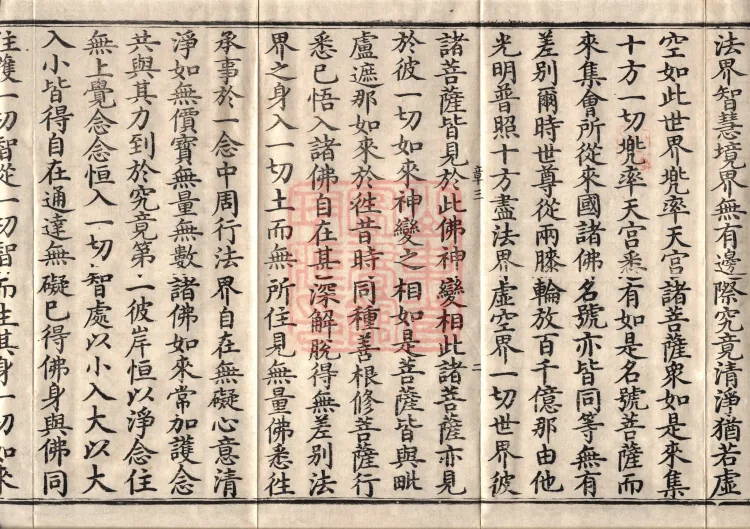 法界智慧境界無有邊際究竟清淨猶若虛
空如此世界兜率天宮諸菩薩衆如是來集
十方一切兜率天宮悉有如是名號菩薩而
來集會所從來國諸佛名號亦皆同等無有
差別爾時世尊從兩膝輪放百千億那由他
光明普照十方盡法界虛空界一切世界彼
諸菩薩皆見於此佛神變相此諸菩薩亦見
章三
二
於彼一切如來神變之相如是菩薩皆與毗
盧遮那如來於徃昔時同種善根修菩薩行
悉已悟入諸佛自在甚深解脫得無差別法
界之身入一切土而無所住見無量佛悉徃
承事於一念中周行法界自在無礙心意清
淨如無價寶無量無數諸佛如來常加護念
共與其力到於究竟第一彼岸恒以淨念住
無上覺念念恒入一切智處以小入大以大
入小皆得自在通達無礙已得佛身與佛同
住獲一切智從一切智而生其身一切如來